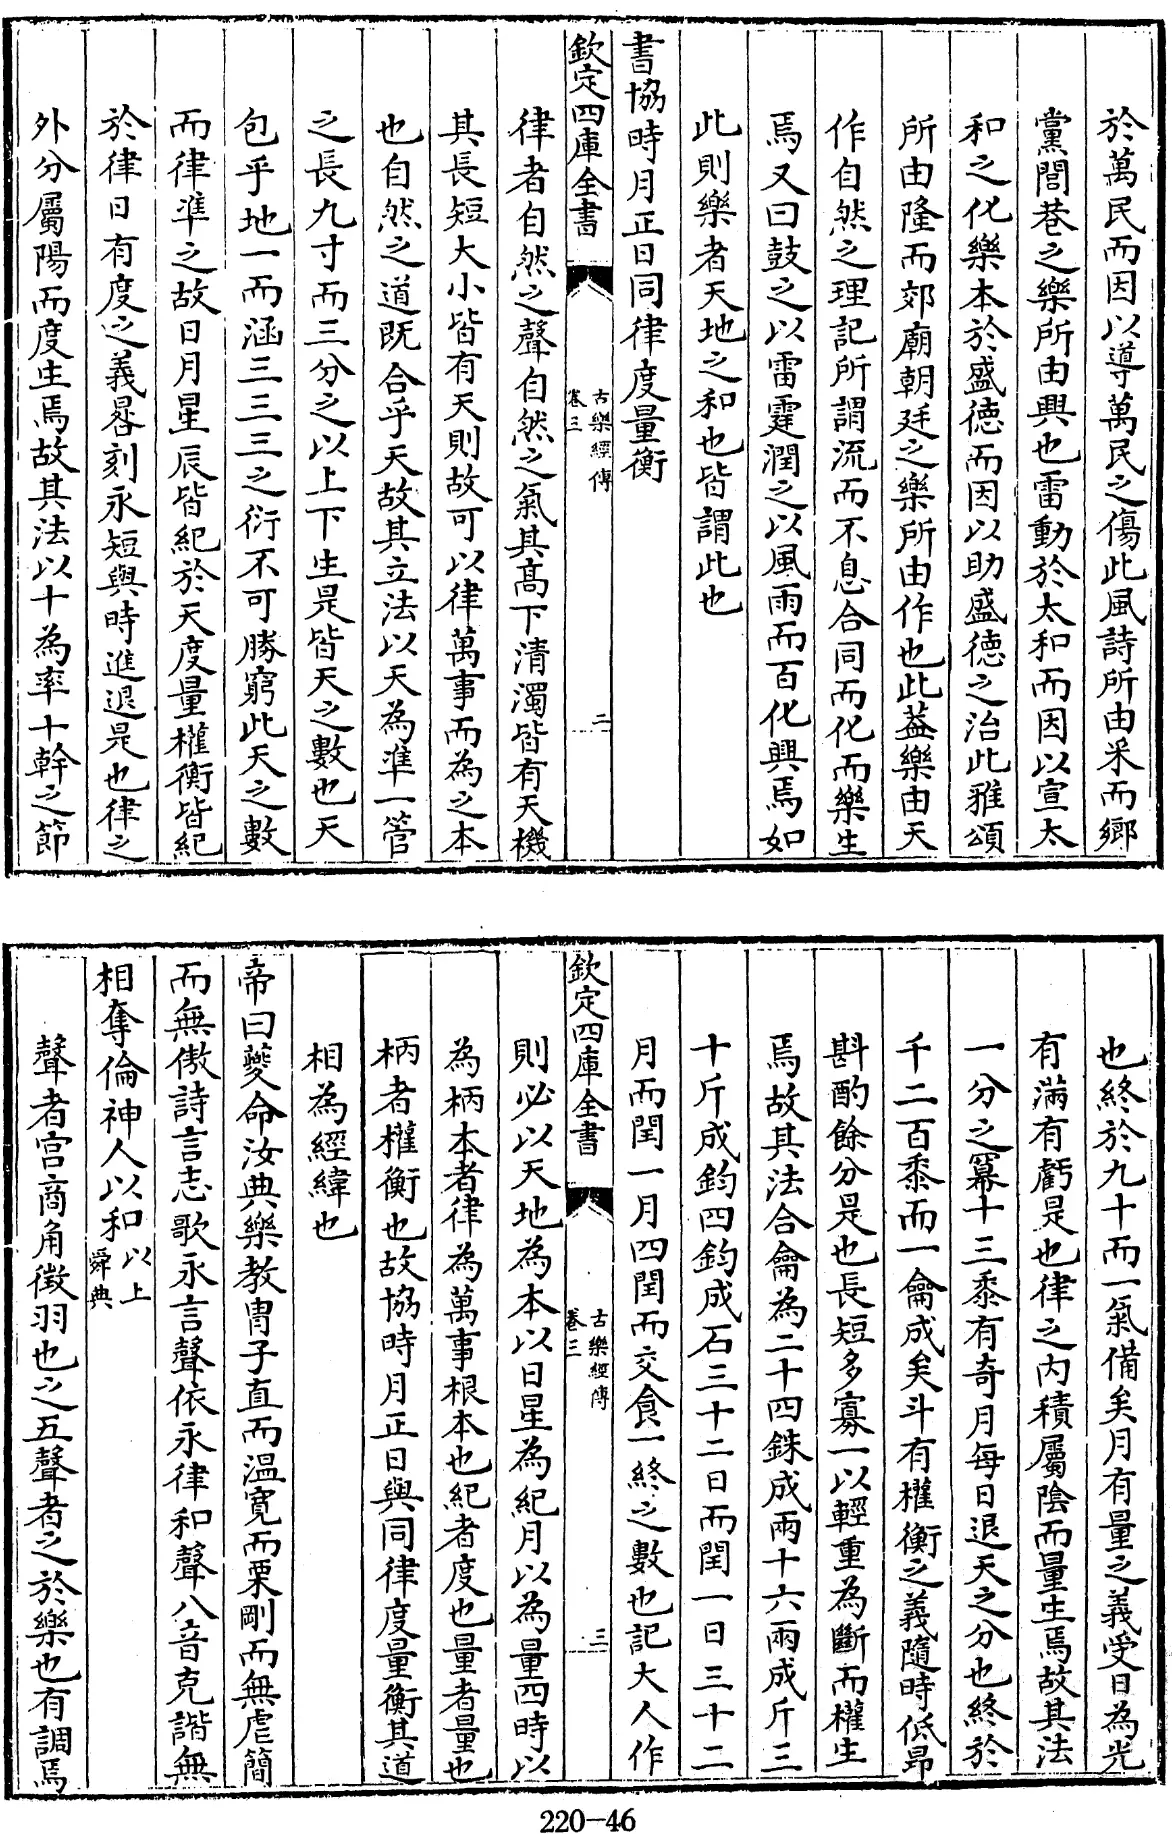 於萬民而因以導萬民之傷此風詩所由采而鄉
黨閭巷之樂所由興也雷動於太和而因以宣太
和之化樂本於盛德而因以助盛德之治此雅頌
所由隆而郊廟朝廷之樂所由作也此蓋樂由天
作自然之理記所謂流而不息合同而化而樂生
焉又曰鼓之以雷霆潤之以風雨而百化興焉如
此則樂者天地之和也皆謂此也
書協時月正日同律度量衡
欽定四庫全書 古樂經傳 卷三 二
律者自然之聲自然之氣其高下清濁皆有天機
其長短大小皆有天則故可以律萬事而為之本
也自然之道既合乎天故其立法以天為準一管
之長九寸而三分之以上下生是皆天之數也天
包乎地一而涵三三三之衍不可勝窮此天之數
而律準之故日月星辰皆紀於天度量權衡皆紀
於律日有度之義晷刻永短與時進退是也律之
外分屬陽而度生焉故其法以十為率十幹之節
也終於九十而一氣備矣月有量之義受日為光
有滿有虧是也律之內積屬陰而量生焉故其法
一分之冪十三黍有奇月每日退天之分也終於
千二百黍而一龠成矣斗有權衡之義隨時低昂
斟酌餘分是也長短多寡一以輕重為斷而權生
焉故其法合龠為二十四銖成兩十六兩成斤三
十斤成鈞四鈞成石三十二日而閏一日三十二
月而閏一月四閏而交食一終之數也記大人作
欽定四庫全書 古樂經傳 卷三 三
則必以天地為本以日星為紀月以為量四時以
為柄本者律為萬事根本也紀者度也量者量也
柄者權衡也故協時月正日與同律度量衡其道
相為經緯也
帝曰夔命汝典樂教冑子直而溫寬而栗剛而無虐簡
而無傲詩言志歌永言聲依永律和聲八音克諧無
相奪倫神人以和以上舜典
聲者宮商角徵羽也之五聲者之於樂也有調焉
220-46